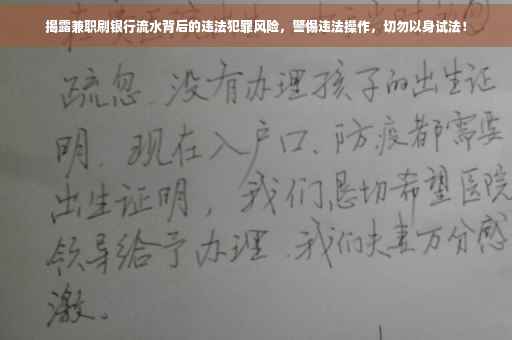 揭露兼职刷银行流水背后的违法犯罪风险，警惕违法操作，切勿以身试法！
疏忽、没有办理孩子的出生证
明、现在入户口、防疫都需要
出生证明，我们恳切希望医院
领导给予办理、我们夫妻万分感
激。